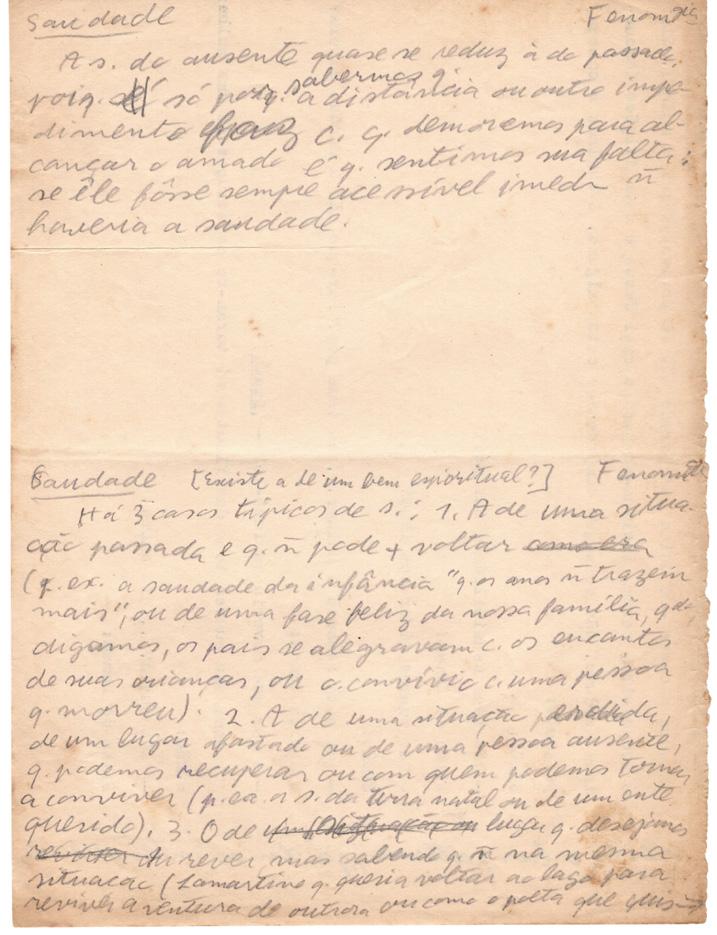 Saudade Fenom
A s. do ausente quase se reduz à do passado,
poiq. só porq. sabermos q. a distância ou outro impe-
dimento faz c. q. demoremos para al-
cançar o amado é q. sentimos sua falta;
se êle fôsse sempre acessível imedt n̄
haveria a saudade.
Saudade [Existe a de um bem espiritual?] Fenom
Há 3 casos típicos de s.: 1. A de uma situa-
ção passada e q. n̄ pode + voltar como era
(p. ex. a saudade da infância "q. os anos n̄ trazem
mais", ou de uma fase feliz da nossa família, qdo,
digamos, os pais se alegravam c. os encantos
de suas crianças, ou o convívio c. uma pessoa
q. morreu). 2. A de uma situação perdida,
de um lugar afastado ou de uma pessoa ausente,
q. podemos recuperar ou com quem podemos tornar
a conviver (p. ex. a s. da terra natal ou de um ente
querido). 3. O de lugar q. desejamos
ou rever mas sabendo q. n̄ na mesma
situação (Lamartine q. queria voltar ao lago para
reviver a ventura de outrora ou como o poeta que quis